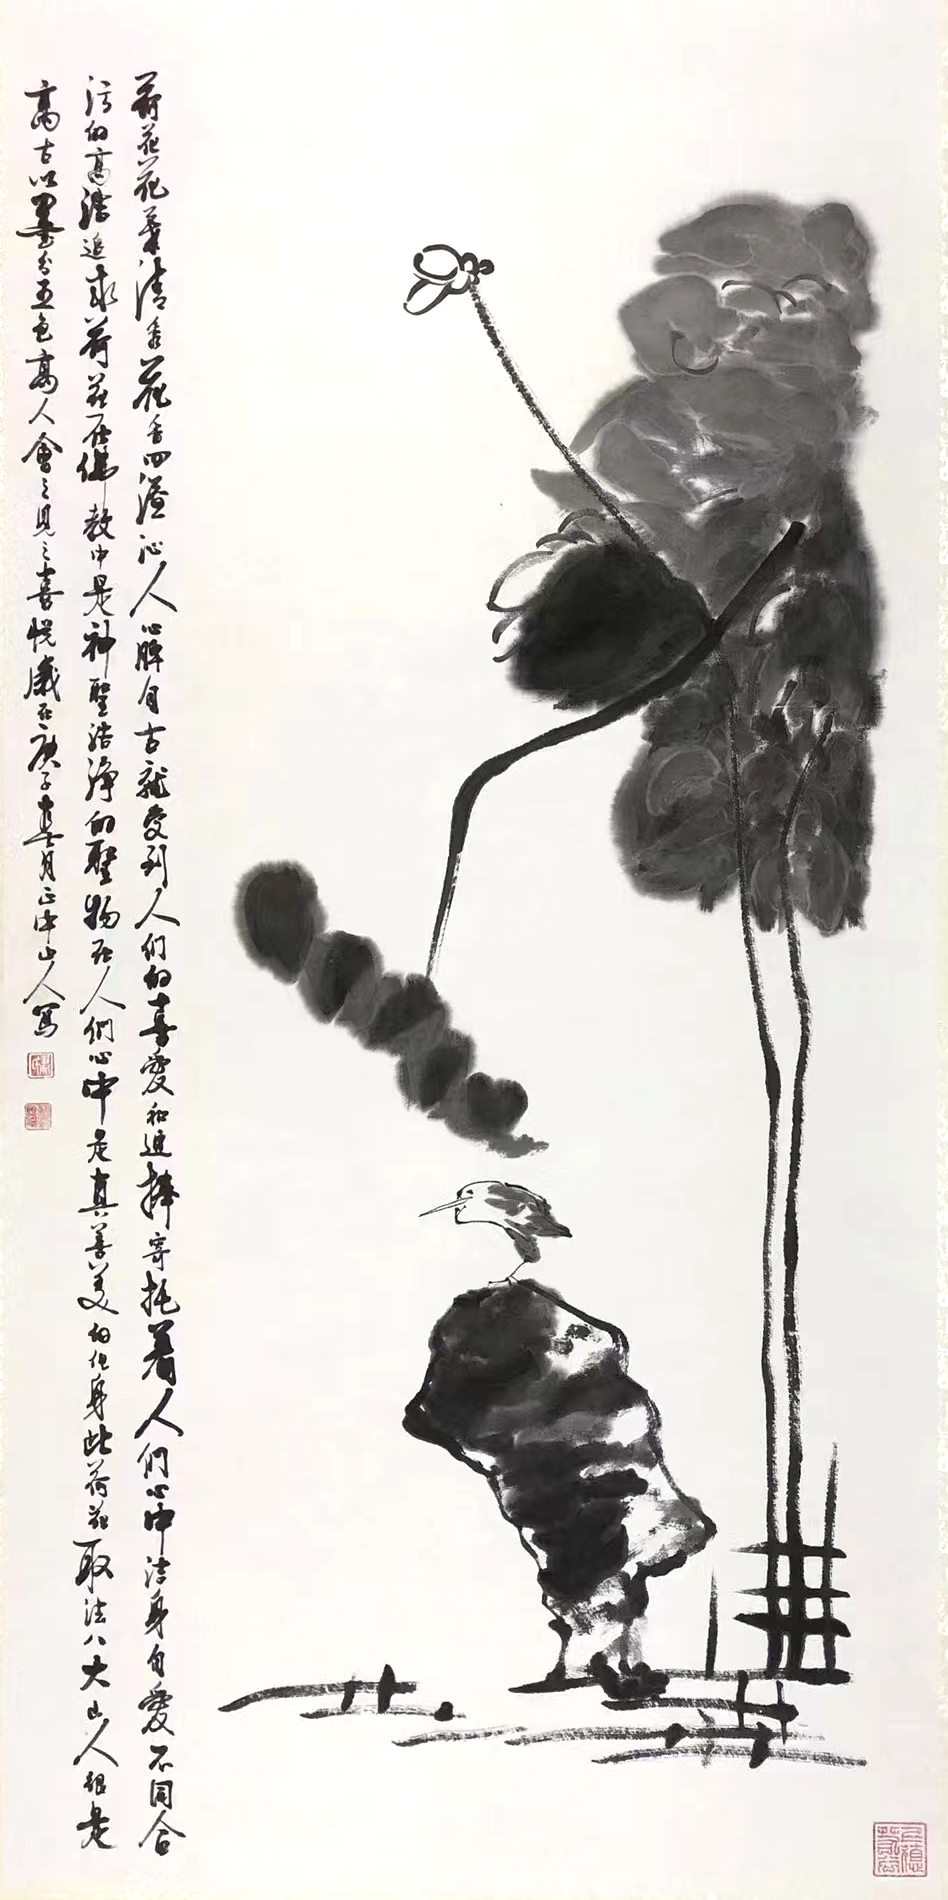 荷花花叶清香花香四溢沁人心脾自古就受到人们的喜爱和追捧寄托着人们心中洁身自爱不同合
污的高洁追求荷花在佛教中是神圣洁净的圣物在人們心中是真善美的化身此荷花取法八大山人很是
高古以墨分五色高人會之見之喜悦歲在庚子真月正中山人寫